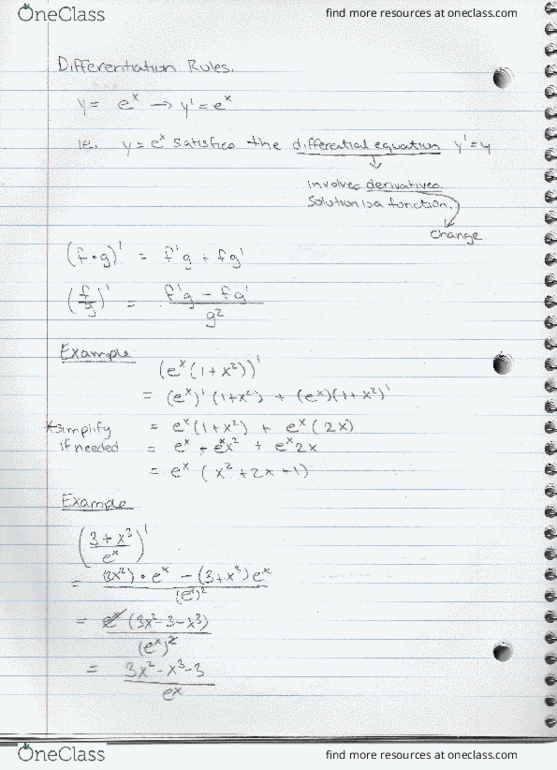 OneClass find more resources at oneclass.com
Differentiation Rules.
y = e^x → y' = e^x
ie. y = e^x satisfies the differential equation y' = y
involves derivatives.
Solution is a function.
change
(f•g)' = f'g + fg'
(f/g)' = (f'g - fg')/g^2
Example
(e^x(1+x^2))'
= (e^x)'(1+x^2) + (e^x)(1+x^2)'
*simplify = e^x(1+x^2) + e^x(2x)
if needed = e^x + e^x x^2 + e^x 2x
= e^x (x^2+2x+1)
Example
((3+x^3)/e^x)'
= ((3x^2)•e^x - (3+x^3)e^x)/(e^x)^2
= e^x(3x^2-3-x^3)/(e^x)^2
= (3x^2-x^3-3)/e^x
OneClass find more resources at oneclass.com